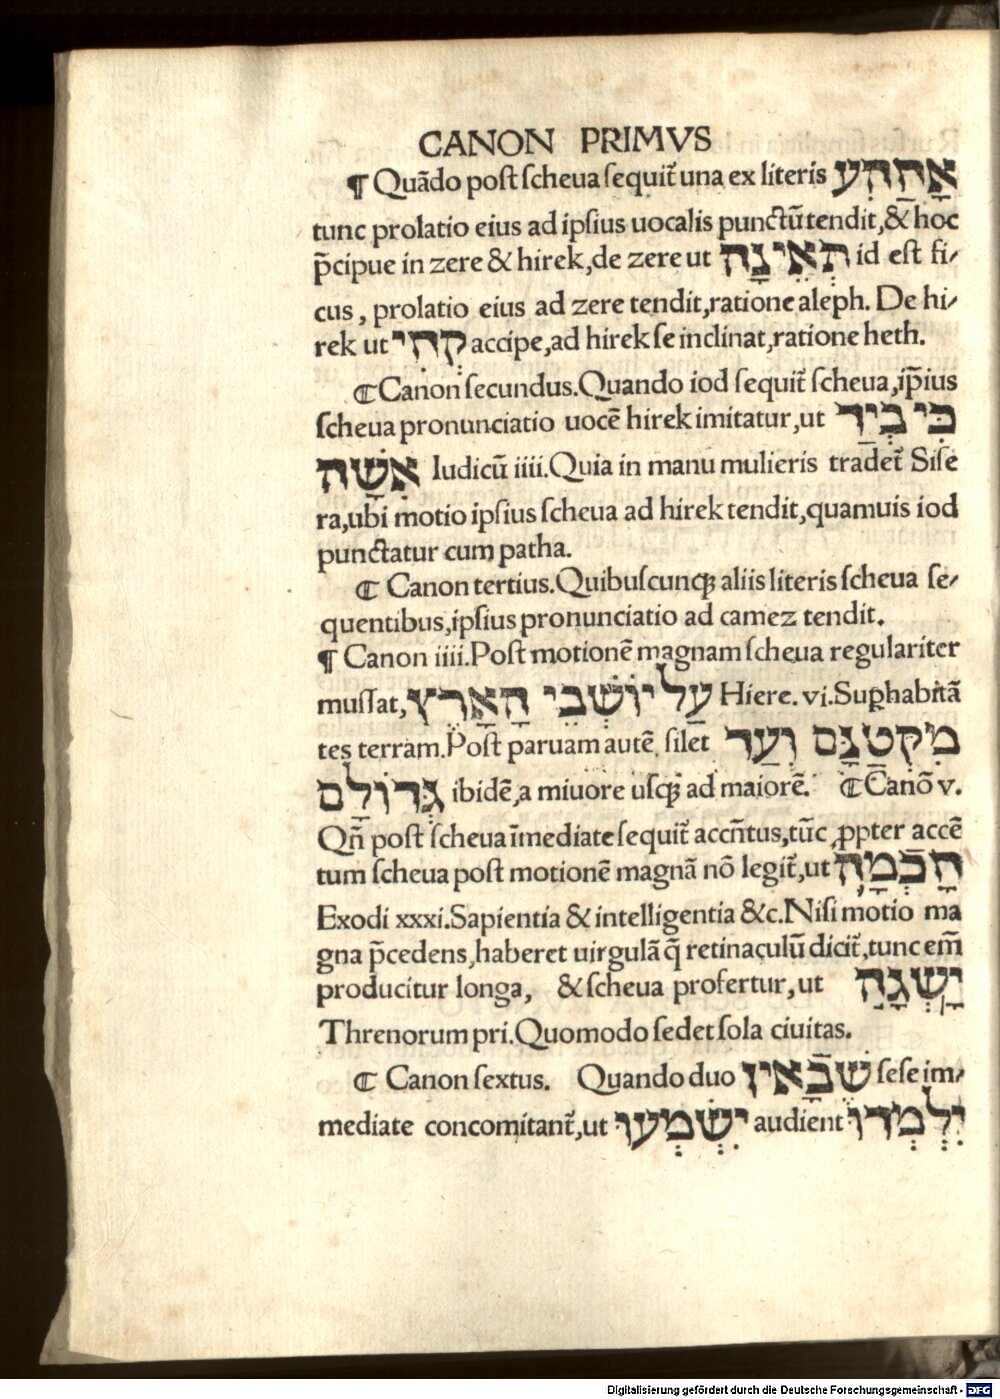 CANON PRIMVS
¶ Quãdo post scheua sequit̃ una ex literis אָחַהִע
tunc prolatio eius ad ipsius uocalis punctũ tendit, & hoc
p̃cipue in zere & hirek, de zere ut תְאֵינָה id est fi/
cus, prolatio eius ad zere tendit, ratione aleph. De hi/
rek ut קְחִי accipe, ad hirek se inclinat, ratione heth.
¶ Canon secundus. Quando iod sequit̃ scheua, ip̃ius
scheua pronunciatio uocẽ hirek imitatur, ut כִּי בְיַד
אִשָׁה Iudicũ iiii. Quia in manu mulieris tradet̃ Sise
ra, ubi motio ipsius scheua ad hirek tendit, quamuis iod
punctatur cum patha.
¶ Canon tertius. Quibuscunqꝫ aliis literis scheua se/
quentibus, ipsius pronunciatio ad camez tendit.
¶ Canon iiii. Post motionẽ magnam scheua regulariter
mussat, עַל יוֹשְׁבֵי הָאָרֶץ Hiere. vi. Suꝑ habitã
tes terram. Post paruam autẽ silet מִקְטַנָּם וְעַד
גְּדוֹלָם ibidẽ, a miuore usqꝫ ad maiorẽ. ¶ Canõ v.
Qñ post scheua ĩmediate sequit̃ accñtus, tũc ꝓpter accẽ
tum scheua post motionẽ magnã nõ legit̃, ut חָכְמָה
Exodi xxxi. Sapientia & intelligentia &c. Nisi motio ma
gna p̃cedens, haberet uirgulã q̃ retinaculũ dicit̃, tunc em̃
producitur longa, & scheua profertur, ut יָשְׁבָה
Threnorum pri. Quomodo sedet sola ciuitas.
¶ Canon sextus. Quando duo שְׁבָאִין sese im/
mediate concomitant̃, ut יִשְׁמְעוּ audient יִלְמְדוּ
Digitalisierung gefördert durch die Deutsche Forschungsgemeinschaft - DFG